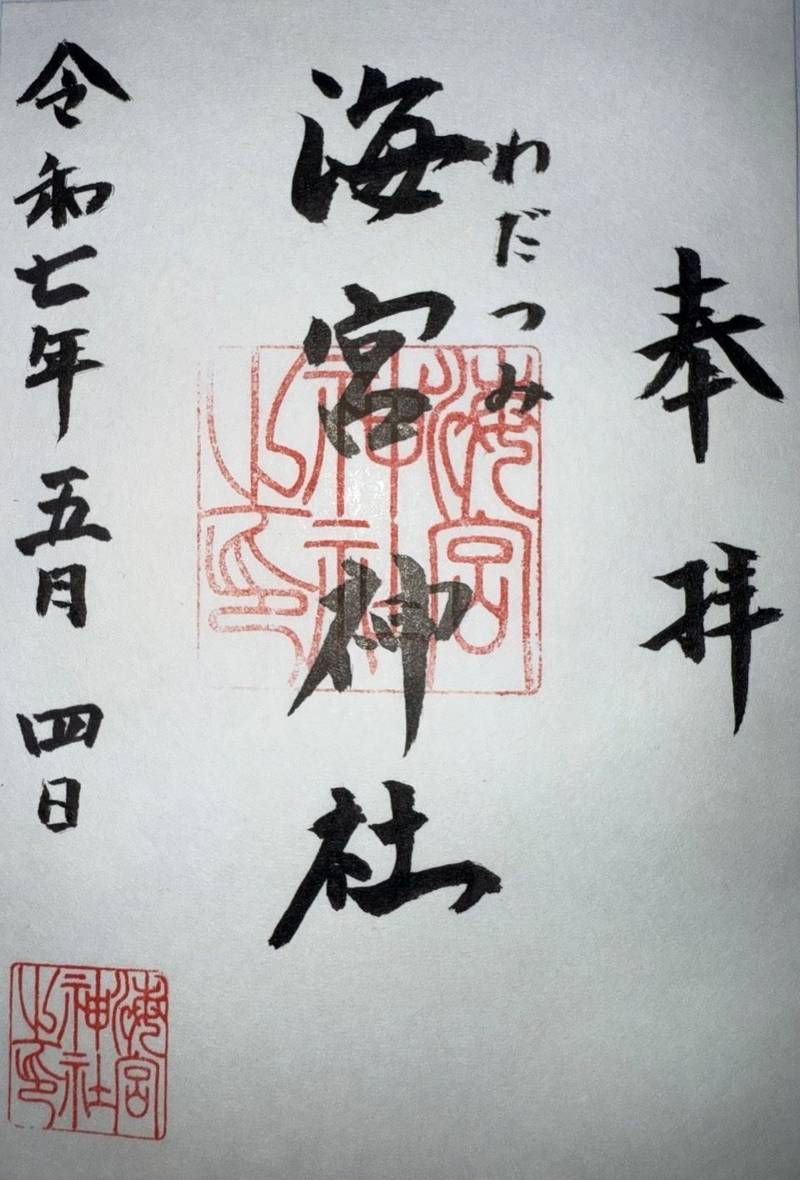 奉拝
わだつみ
海宮神社
海宮神社之印
令和七年五月四日
海宮神社之印